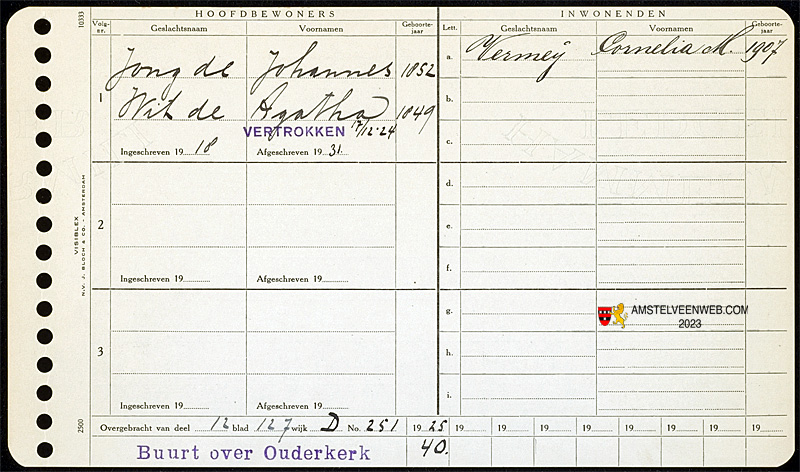 HOOFDBEWONERS
INWONENDEN
Volg-nr. Geslachtsnaam Voornamen Geboorte-jaar Lett. Geslachtsnaam Voornamen Geboorte-jaar
10333
Jong de Johannes 1852
a. Vermeij Cornelia M. 1907
1 Wit de Agatha 1849
b.
VERTROKKEN 17/12-24
c.
Ingeschreven 19 18 Afgeschreven 19 31.
d.
2
e.
f.
Ingeschreven 19 Afgeschreven 19
g.
AMSTELVEENWEB.COM
2023
3
h.
i.
Ingeschreven 19 Afgeschreven 19
VISIBLEX
N.V. J. BLOCH & CO. - AMSTERDAM
2500
Overgebracht van deel 12 blad 127 wijk D No. 251 19 25 19 19 19 19 19 19 19 19
Buurt over Ouderkerk 40.